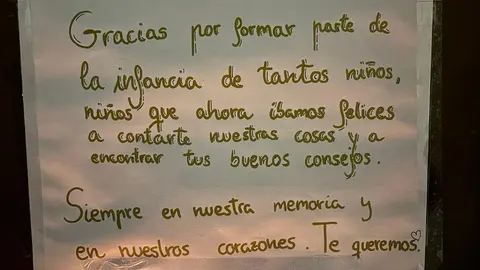 Gracias por formar parte de
la infancia de tantos niños,
niños que ahora íbamos felices
a contarte nuestras cosas y a
encontrar tus buenos consejos.
Siempre en nuestra memoria y
en nuestros corazones. Te queremos.